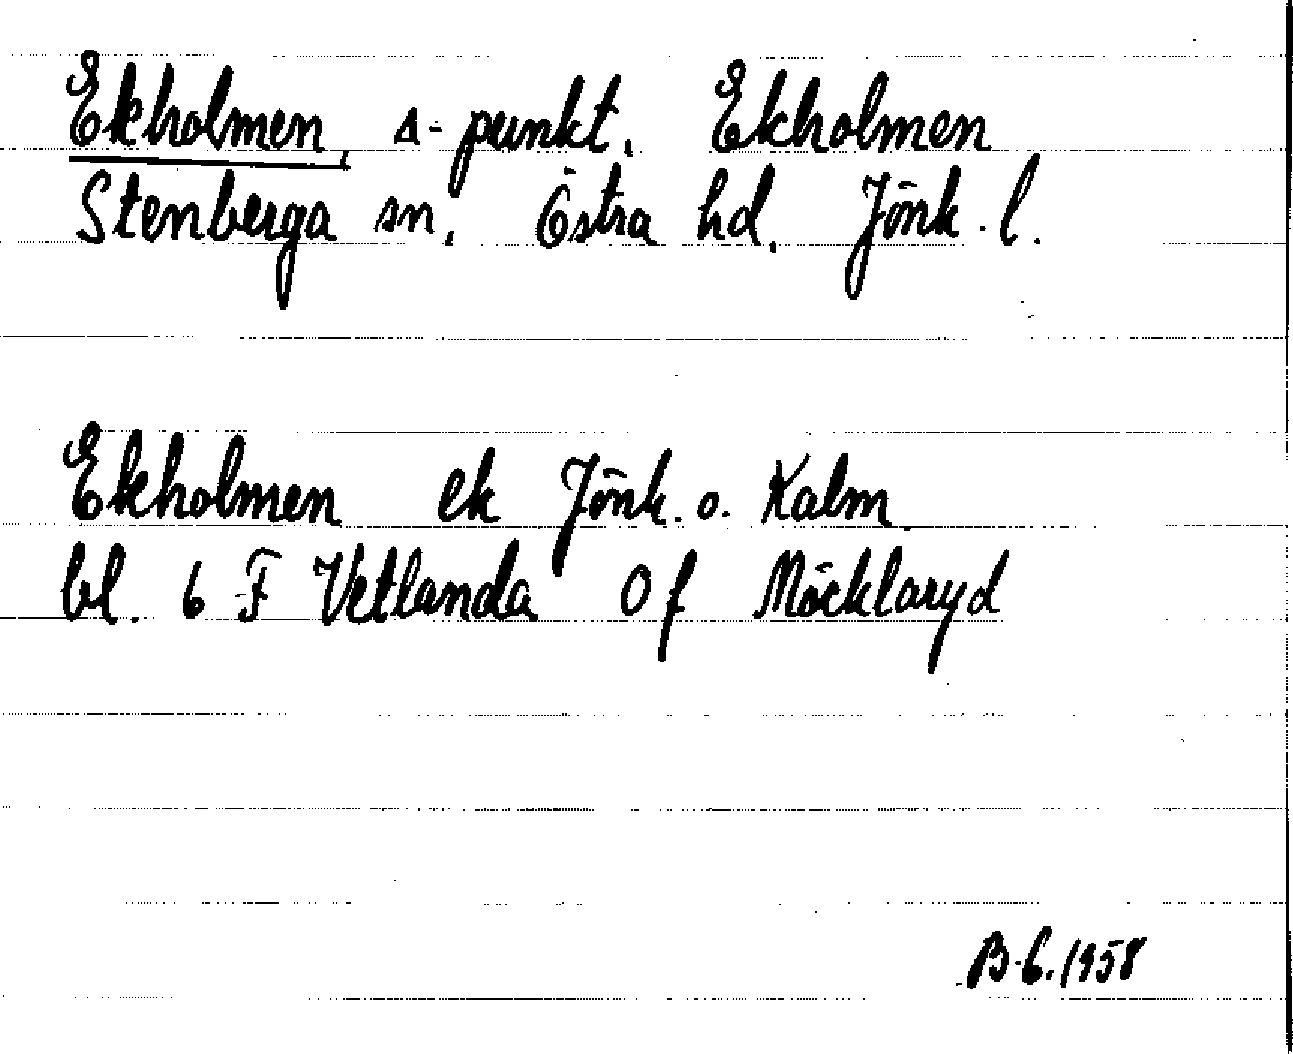 Ekholmen, Δ-punkt. Ekholmen
Stenberga sn, Östra hd. Jönk. l.
Ekholmen ek Jönk. o. Kalm.
bl. 6 F Vetlanda 0 f Möcklaryd
B.G. 1958